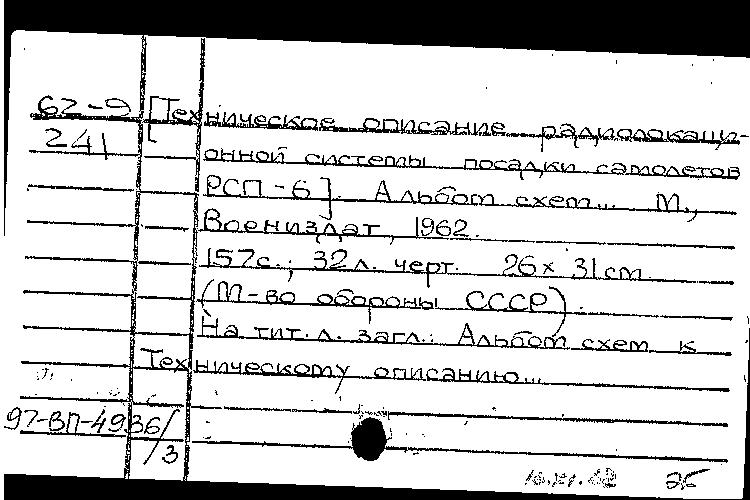 62-9 [Техническое описание радиолокаци-
241 онной системы посадки самолетов
РСП-6]. Альбом схем... М.,
Воениздат, 1962.
157с.; 32л. черт. 26х31cm
(М-во обороны СССР).
На тит. л. загл.: Альбом схем к
Техническому описанию...
97-ВП-4936/3